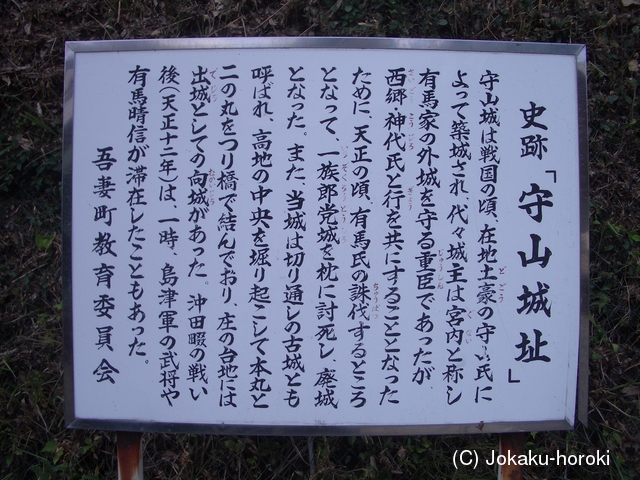 史跡「守山城址」
守山城は戦国の頃、在地土豪の守山氏に
よって築城され、代々城主は宮内と称し
有馬家の外城を守る重臣であったが、
西郷、神代氏と行を共にすることとなった
ために、天正の頃、有馬氏の誅伐するところ
となって、一族郎党城を枕に討死し、廃城
となった。また、当城は切り通しの古城とも
呼ばれ、高地の中央を堀り起こして本丸と
二の丸をつり橋で結んでおり、庄の台地には
出城としての向城があった。沖田畷の戦い
後(天正十二年)は、一時、島津軍の武将や
有馬晴信が滞在したこともあった。
吾妻町教育委員会
(C) Jokaku-horoki